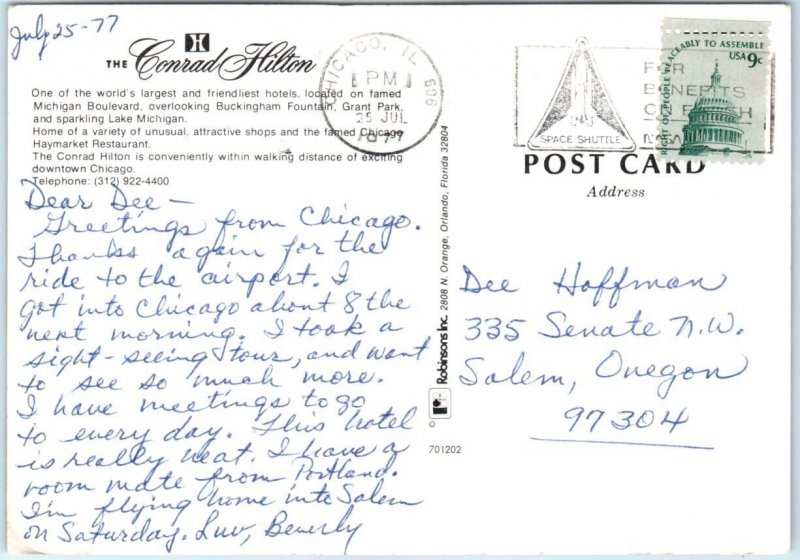 July 25-77
THE Conrad Hilton
One of the world's largest and friendliest hotels, located on famed
Michigan Boulevard, overlooking Buckingham Fountain, Grant Park,
and sparkling Lake Michigan.
Home of a variety of unusual, attractive shops and the famed Chicago
Haymarket Restaurant.
The Conrad Hilton is conveniently within walking distance of exciting
downtown Chicago.
Telephone: (312) 922-4400
CHICAGO, IL 606
PM
25 JUL
1977
SPACE SHUTTLE
FOR
BENEFITS
ON EARTH
NOW
RIGHT OF PEOPLE PEACEABLY TO ASSEMBLE
USA 9c
POST CARD
Address
Dear Dee —
Greetings from Chicago.
Thanks again for the
ride to the airport. I
got into Chicago about 8 the
next morning. I took a
sight-seeing tour, and want
to see so much more.
I have meetings to go
to every day. This hotel
is really neat. I have a
room mate from Portland.
I'm flying home into Salem
on Saturday. Luv, Beverly
Robinsons Inc. 2808 N. Orange, Orlando, Florida 32804
©
701202
Dee Hoffman
335 Senate N.W.
Salem, Oregon
97304